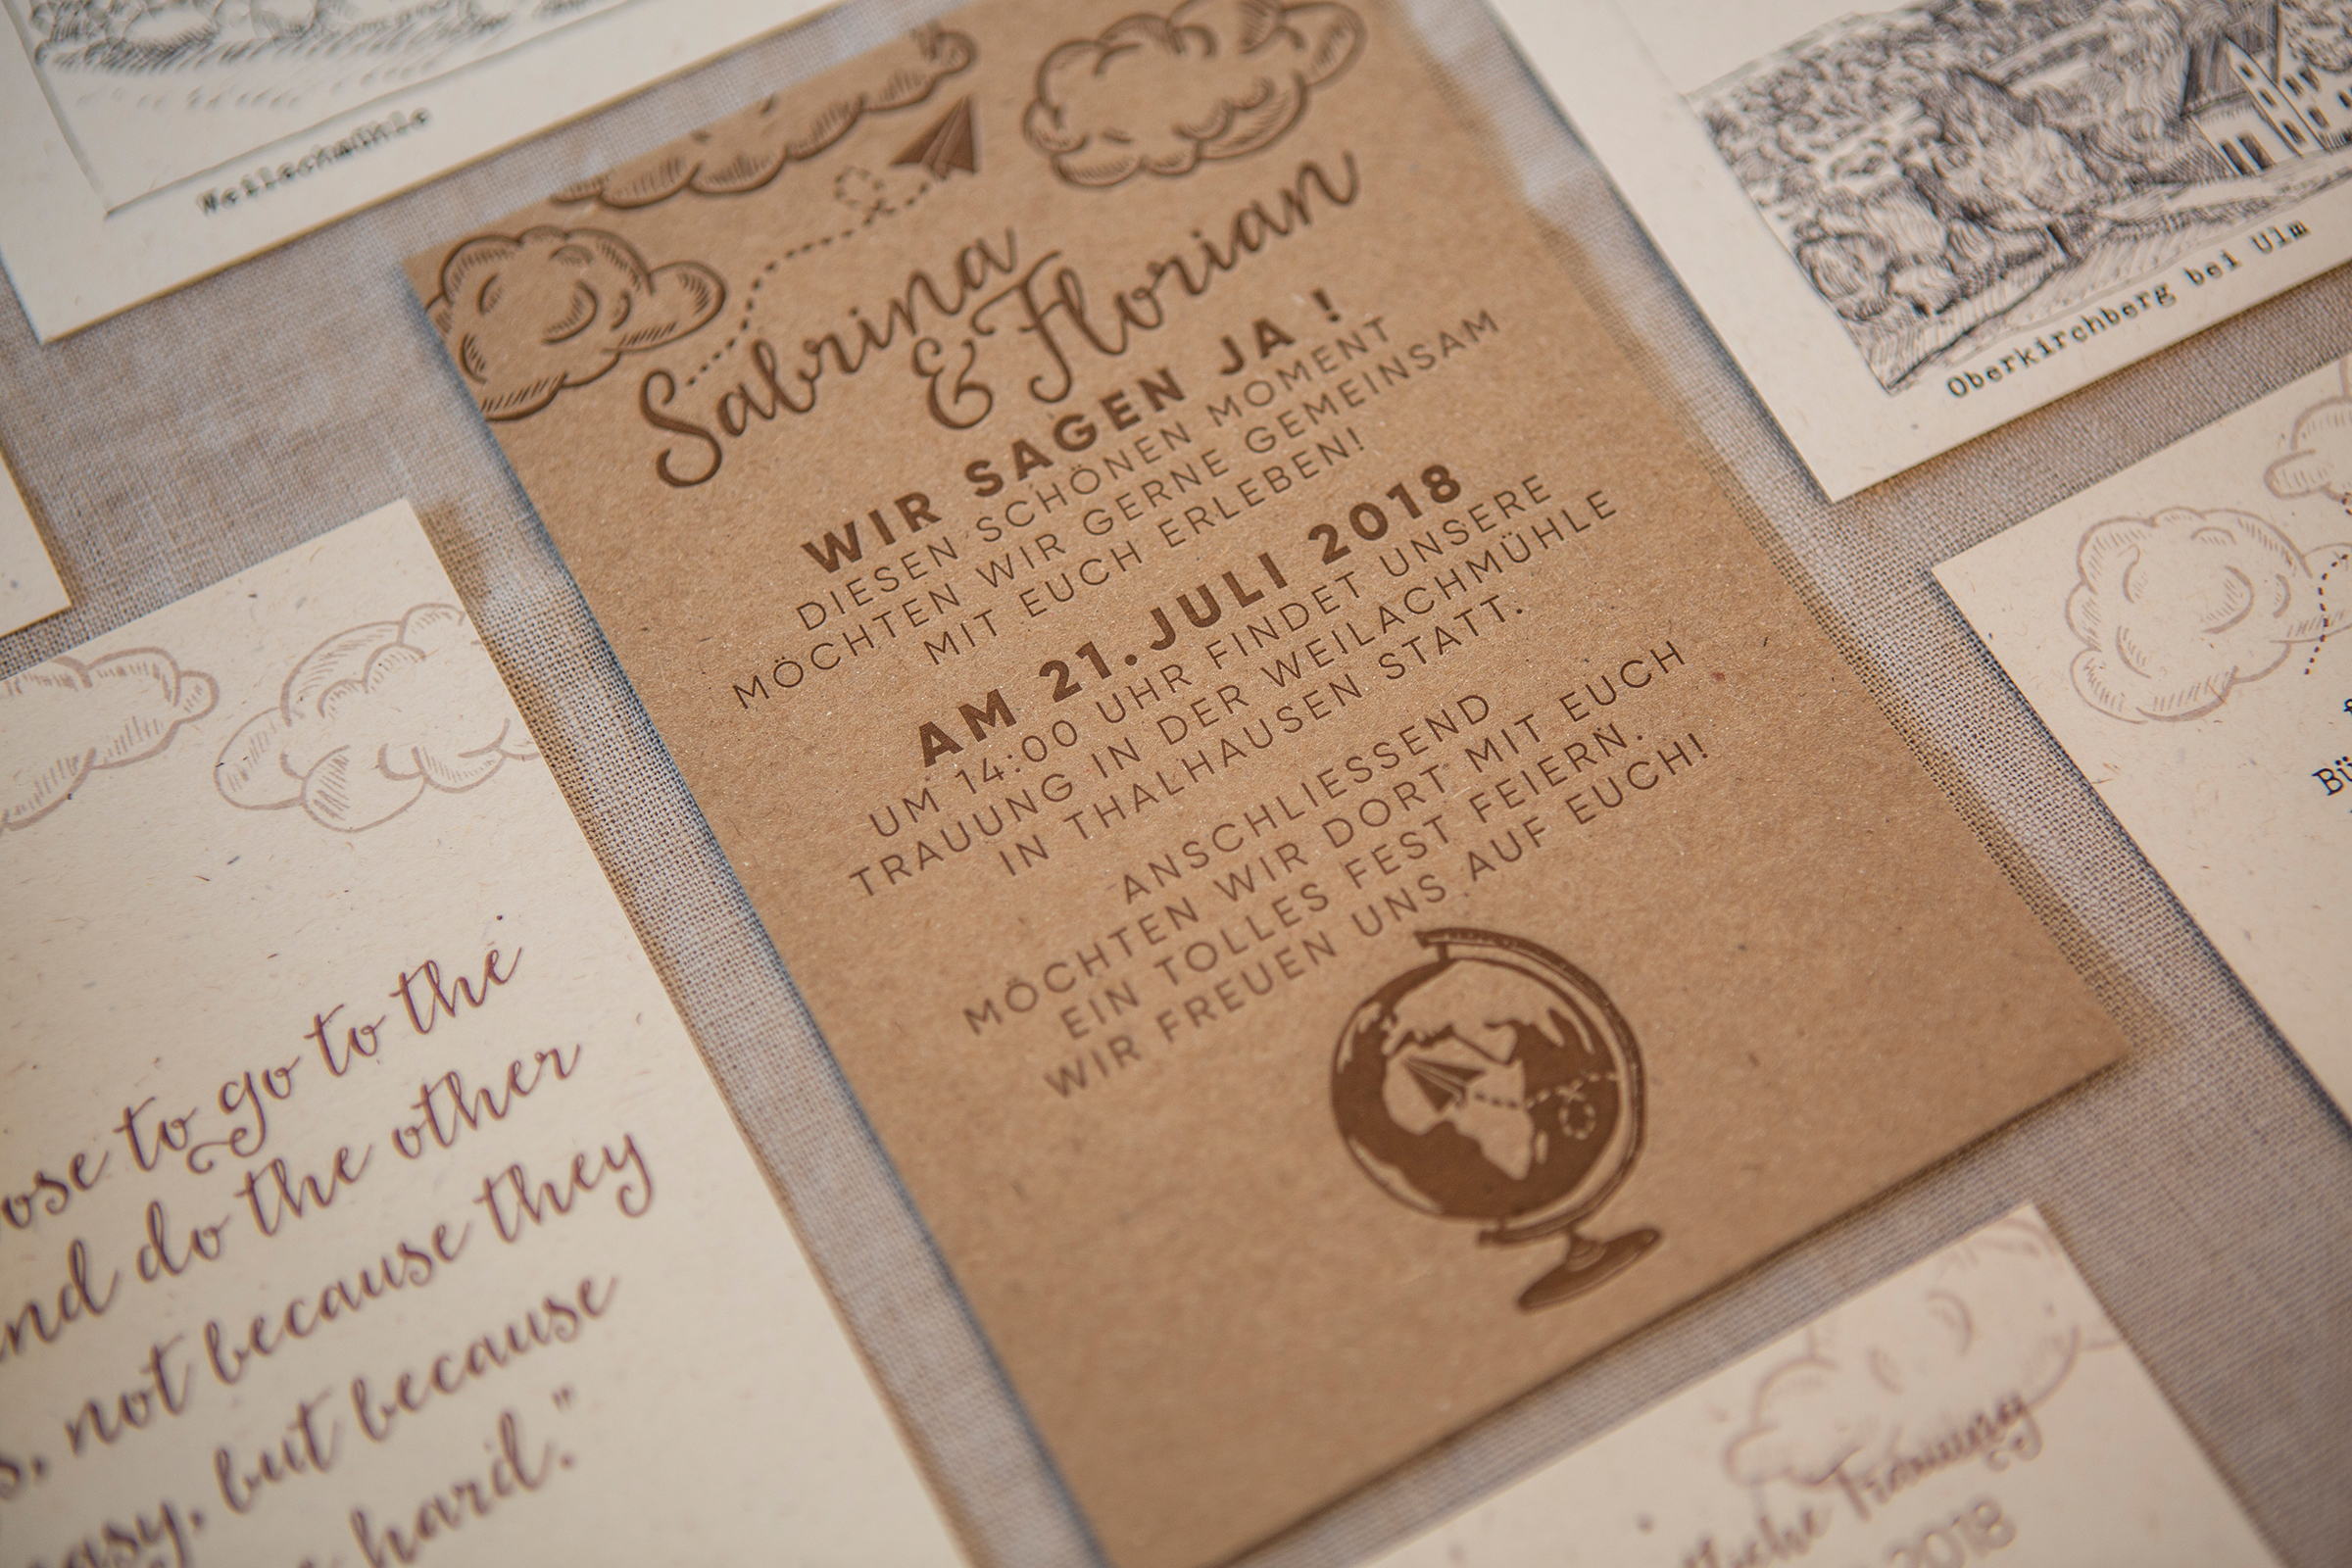 Weilachmühle
Oberkirchberg bei Ulm
Sabrina
& Florian
WIR SAGEN JA !
DIESEN SCHÖNEN MOMENT
MÖCHTEN WIR GERNE GEMEINSAM
MIT EUCH ERLEBEN!
AM 21.JULI 2018
UM 14:00 UHR FINDET UNSERE
TRAUUNG IN DER WEILACHMÜHLE
IN THALHAUSEN STATT.
ANSCHLIESSEND
MÖCHTEN WIR DORT MIT EUCH
EIN TOLLES FEST FEIERN.
WIR FREUEN UNS AUF EUCH!
to go to the
do the other
not because they
but because
hard."
Trauung
2018